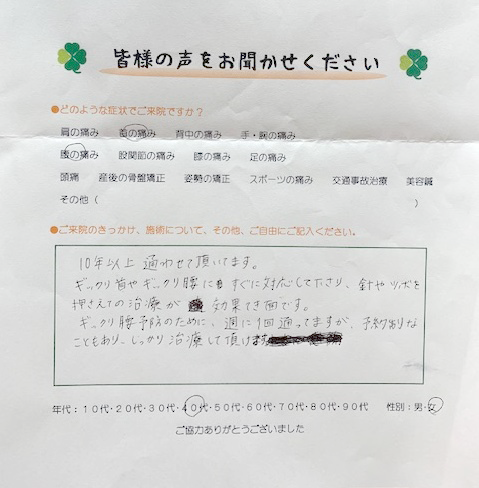 皆様の声をお聞かせください
●どのような症状でご来院ですか？
肩の痛み 首の痛み 背中の痛み 手・腕の痛み
腰の痛み 股関節の痛み 膝の痛み 足の痛み
頭痛 産後の骨盤矯正 姿勢の矯正 スポーツの痛み 交通事故治療 美容鍼
その他（ ）
●ご来院のきっかけ、施術について、その他、ご自由にご記入ください。
10年以上通わせて頂いてます。
ギックリ首やギックリ腰にもすぐに対応して下さり、針やツボを
押さえての治療が効果てき面です。
ギックリ腰予防のために、週に1回通ってますが、予約制な
こともあり、しっかり治療して頂けます
年代：10代・20代・30代・40代・50代・60代・70代・80代・90代 性別：男・女
ご協力ありがとうございました